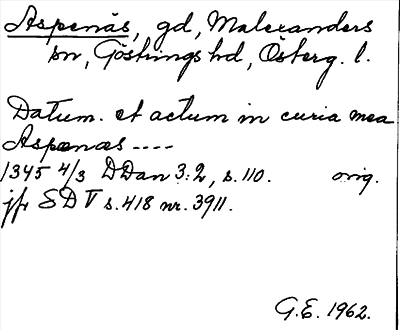 Aspenäs, gd, Malexanders
sn, Göstrings hd, Österg. l.
Datum et actum in curia mea
Aspænæs ----
1345 4/3 DDan 3:2, s. 110. orig.
jfr SD V s. 418 nr. 3911.
G.E. 1962.